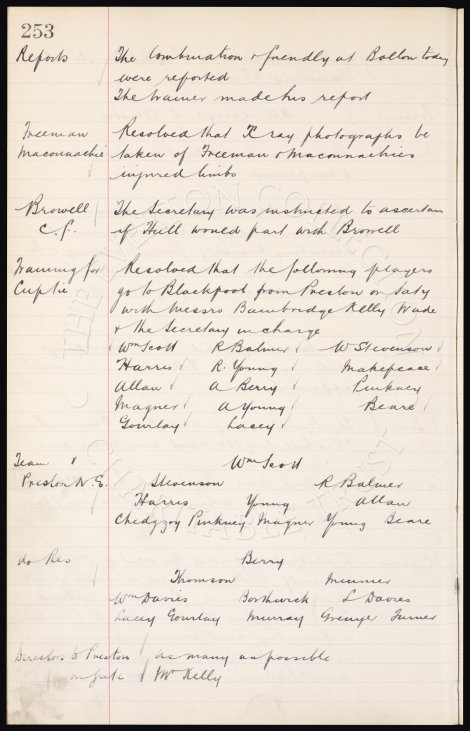 253
Reports The Combination & friendly at Bolton today
were reported
The trainer made his report
Freeman Resolved that X ray photographs be
Maconnachie taken of Freeman & Maconnachies
injured limbs
Browell The Secretary was instructed to ascertain
C. f. if Hull would part with Browell
Training for Resolved that the following players
Cuptie go to Blackpool from Preston on Saty
with Messrs Bainbridge Kelly Wade
& the Secretary in charge
Wm Scott R Balmer W Stevenson
Harris R. Young Makepeace
Allan A Berry Pinkney
Magner A Young Beare
Gourlay Lacey
Team v Wm Scott
Preston N. E. Stevenson R Balmer
Harris Young Allan
Chedgzoy Pinkney Magner Young Beare
do Res Berry
Thomson Meunier
Wm Davies Borthwick L Davies
Lacey Gourlay Murray Grenyer Turner
Directors to Preston as many as possible
on gate Mr Kelly